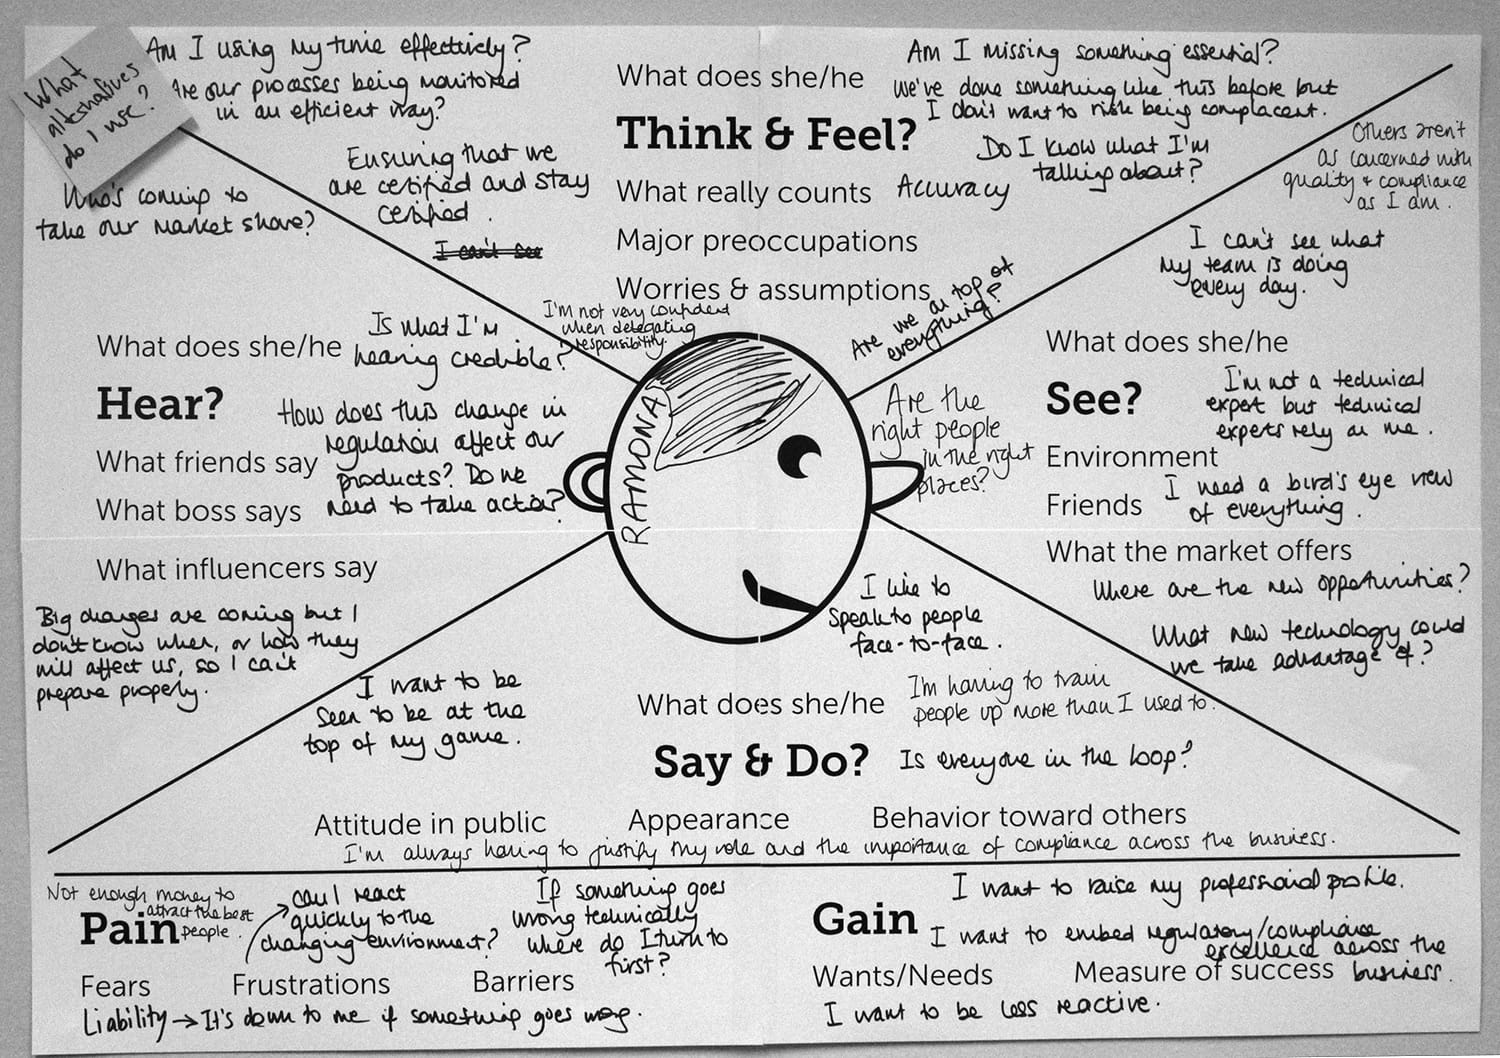 What
alternatives
do I use?
Am I using my time effectively?
Are our processes being monitored
in an efficient way?
Ensuring that we
are certified and stay
certified.
I can't see
Who's coming to
take our market share?
What does she/he
Think & Feel?
What really counts
Accuracy
Major preoccupations
Worries & assumptions
Am I missing something essential?
We've done something like this before but
I don't want to risk being complacent.
Do I know what I'm
talking about?
I'm not very confident
when delegating
responsibility.
Are we on top of
everything?
Others aren't
as concerned with
quality + compliance
as I am.
I can't see what
my team is doing
every day.
What does she/he
Hear?
What friends say
What boss says
What influencers say
Is what I'm
hearing credible?
How does this change in
regulation affect our
products? Do we
need to take action?
Big changes are coming but I
don't know when, or how they
will affect us, so I can't
prepare properly.
RAMONA
Are the
right people
in the right
places?
What does she/he
See?
Environment
Friends
What the market offers
I'm not a technical
expert but technical
experts rely on me.
I need a bird's eye view
of everything.
Where are the new opportunities?
What new technology could
we take advantage of?
I like to
speak to people
face-to-face.
I want to be
seen to be at the
top of my game.
What does she/he
Say & Do?
Attitude in public
Appearance
Behavior toward others
I'm having to train
people up more than I used to.
Is everyone in the loop?
I'm always having to justify my role and the importance of compliance across the business.
Not enough money to
attract the best
people.
Pain
Can I react
quickly to the
changing environment?
If something goes
wrong technically
where do I turn to
first?
Fears
Frustrations
Barriers
Liability → It's down to me if something goes wrong.
Gain
I want to raise my professional profile.
I want to embed regulatory/compliance
excellence across the
business.
Wants/Needs
Measure of success
I want to be less reactive.